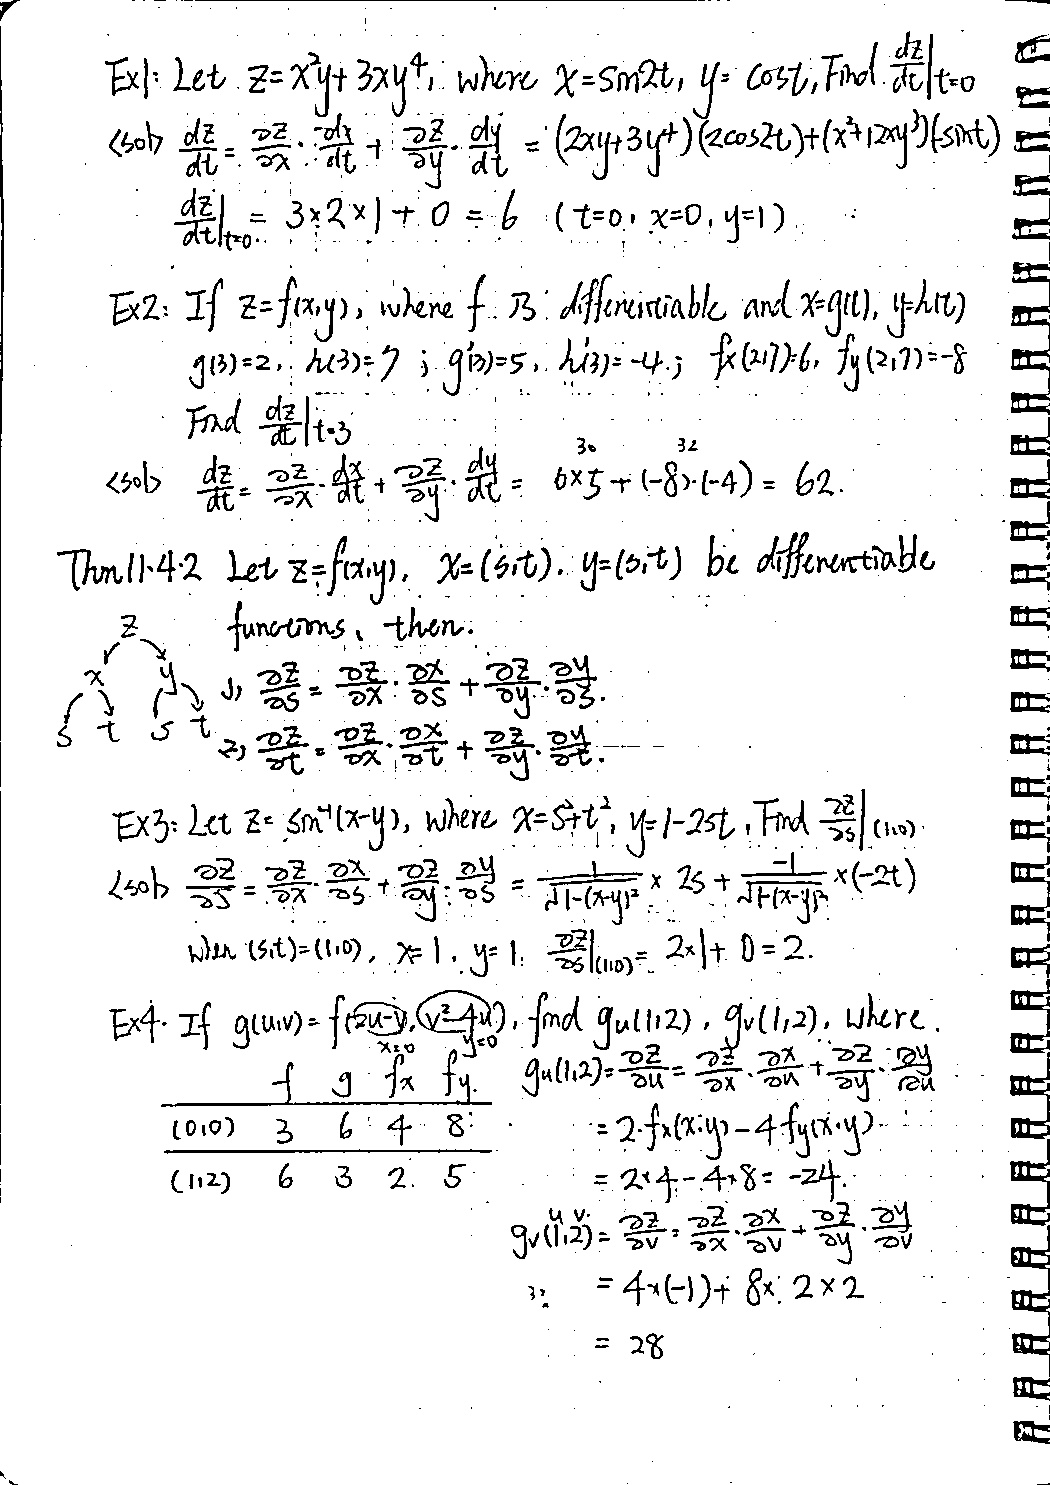 Ex1: Let z = x²y + 3xy⁴, where x = sin2t, y = cost, Find dz/dt|t=0
<sol> dz/dt = ∂z/∂x · dx/dt + ∂z/∂y · dy/dt = (2xy+3y⁴)(2cos2t)+(x²+12xy³)(-sint)
dz/dt|t=0 = 3×2×1 + 0 = 6 (t=0, x=0, y=1)
Ex2: If z=f(x,y), where f is differentiable and x=g(t), y=h(t)
g(3)=2, h(3)=7 ; g'(3)=5, h'(3)=-4 ; fx(2,7)=6, fy(2,7)=-8
Find dz/dt|t=3
30 32
<sol> dz/dt = ∂z/∂x · dx/dt + ∂z/∂y · dy/dt = 6×5 + (-8)·(-4) = 62.
Thm 11.4.2 Let z=f(x,y), x=(s,t), y=(s,t) be differentiable
functions, then.
z
x y
s t s t
1) ∂z/∂s = ∂z/∂x · ∂x/∂s + ∂z/∂y · ∂y/∂s.
2) ∂z/∂t = ∂z/∂x · ∂x/∂t + ∂z/∂y · ∂y/∂t.
Ex3: Let z = sin⁻¹(x-y), where x=s²+t², y=1-2st, Find ∂z/∂s|(1,0)
<sol> ∂z/∂s = ∂z/∂x · ∂x/∂s + ∂z/∂y · ∂y/∂s = 1/√(1-(x-y)²) × 2s + -1/√(1-(x-y)²) ×(-2t)
when (s,t)=(1,0), x=1, y=1. ∂z/∂s|(1,0) = 2×1 + 0 = 2.
Ex4. If g(u,v) = f(2u-v, v²-4u), find gu(1,2), gv(1,2), where.
x=0 y=0
f g fx fy
(0,0) 3 6 4 8
(1,2) 6 3 2 5
gu(1,2) = ∂z/∂u = ∂z/∂x · ∂x/∂u + ∂z/∂y · ∂y/∂u
= 2·fx(x,y) - 4fy(x,y)
= 2×4 - 4×8 = -24.
u v
gv(1,2) = ∂z/∂v = ∂z/∂x · ∂x/∂v + ∂z/∂y · ∂y/∂v
= 4×(-1) + 8×2×2
32
= 28